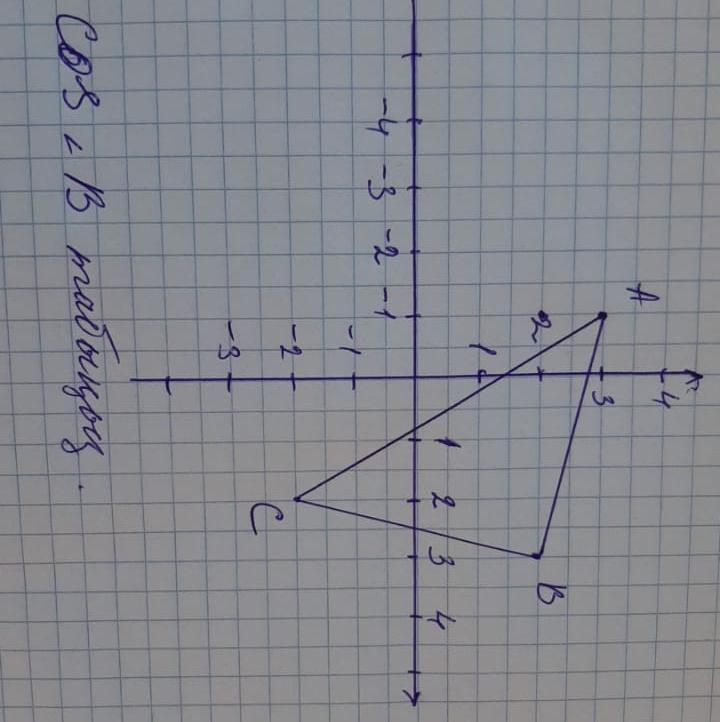 4
A
3
2
B
1
-4 -3 -2 -1 1 2 3 4
-1
-2
C
-3
Cos ∠B табыңыз.